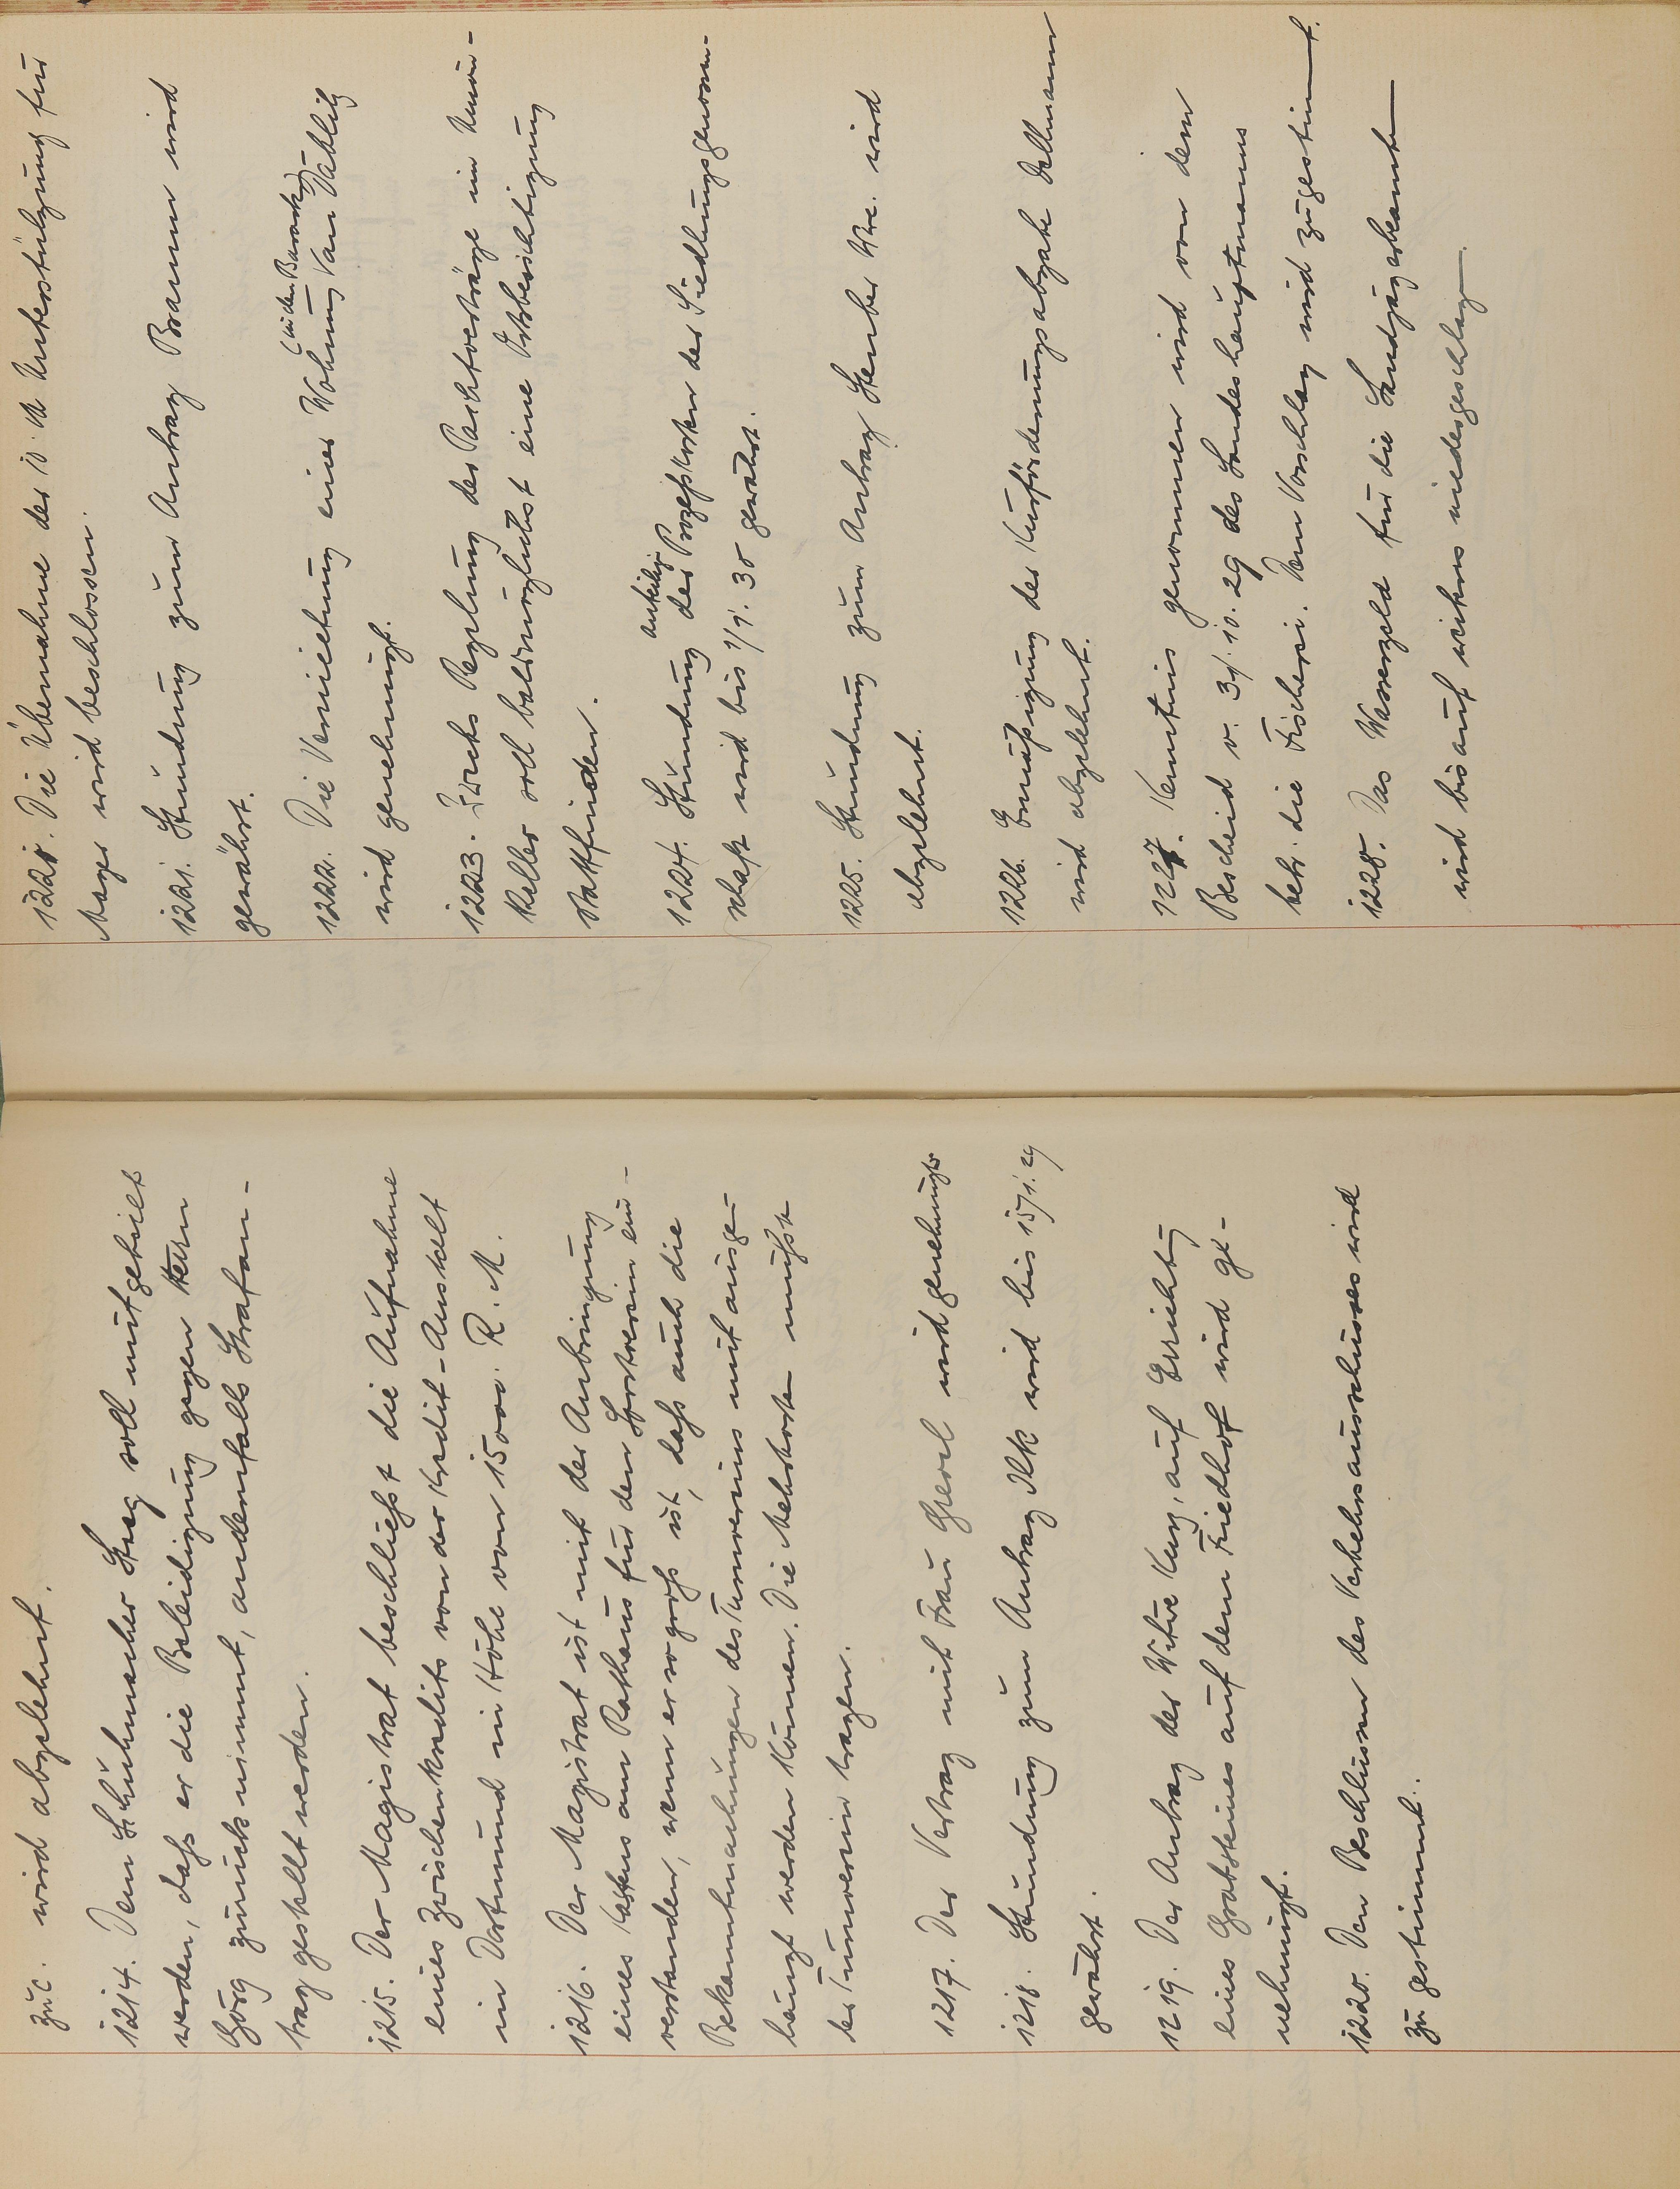 zu c. wird abgelehnt.
1214. Dem Schuhmacher Steeg soll mitgeteilt
werden, daß er die Beleidigung gegen Herrn
Görg zurücknimmt, andernfalls Strafan-
trag gestellt werden.
1215. Der Magistrat beschließt die Aufnahme
eines Zwischenkredits von der Kredit-Anstalt
in Dortmund in Höhe von 15000. R.M.
1216. Der Magistrat ist mit der Anbringung
eines Kastens am Rathaus für den Sportverein ein-
verstanden, wenn er so groß ist, daß auch die
Bekanntmachungen des Turnvereins mit ausge-
hängt werden können. Die Mehrkosten müßte
der Turnverein tragen.
1217. Der Vertrag mit Frau wird genehmigt
1218. Stundung zum Antrag Ilk wird bis 15/1.29
gewährt.
1219. Der Antrag der Witwe auf Errichtg
eines Grabsteines auf dem Friedhof wird ge-
nehmigt.
1220. Den Beschlüssen des Verkehrsausschusses wird
zugestimmt.
1220. Die Übernahme der 10 M Unterstützung für
Mager wird beschlossen.
1221. Stundung zum Antrag Braun wird
gewährt.
(in den Baracken)
1222. Die Vermietung einer Wohnung van Dahlig
wird genehmigt.
1223. Zwecks Reglung der Pachtverträge im
keller soll baldmöglichst eine Ortsbesichtigung
stattfinden.
anteilig
1224. Stundung der Prozeßkosten der Siedlungsgenossen-
schaft wird bis 1/7. 30 gewährt.
1225. Stundung zum Antrag Stenber Wwe. wird
abgelehnt.
1226. Ermäßigung der Kurförderungsabgabe Dellmann
wird abgelehnt.
1227. Kenntnis genommen wird von dem
Bescheid v. 31.10.29 des Landeshauptmanns
betr. die Fischerei. Dem Vorschlag wird zugestimmt.
1228. Das Wassergeld für die Landjägerbeamten
wird bis auf weiteres niedergeschlagen.